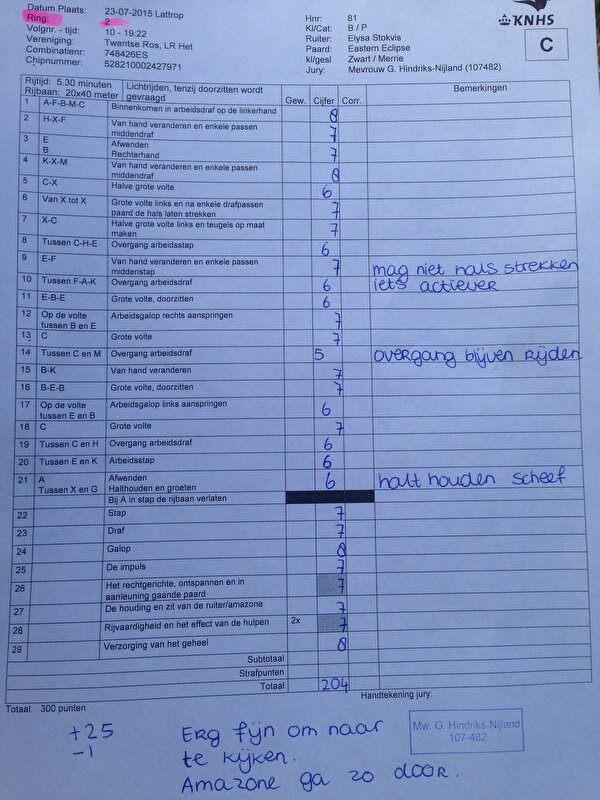 Datum Plaats: 23-07-2015 Lattrop
Ring: 2
Volgnr. - tijd: 10 - 19:22
Vereniging: Twentse Ros, LR Het
Combinatienr: 748426ES
Chipnummer: 528210002427971
Hnr: 81
Kl/Cat: B / P
Ruiter: Elysa Stokvis
Paard: Eastern Eclipse
kl/gesl Zwart / Merrie
Jury: Mevrouw G. Hindriks-Nijland (107482)
KNHS
C
Rijtijd: 5.30 minuten
Rijbaan: 20x40 meter
Lichtrijden, tenzij doorzitten wordt
gevraagd
Gew. Cijfer Corr. Bemerkingen
1 A-F-B-M-C Binnenkomen in arbeidsdraf op de linkerhand 8
2 H-X-F Van hand veranderen en enkele passen
middendraf 7
3 E Afwenden
B Rechterhand 7
4 K-X-M Van hand veranderen en enkele passen
middendraf 8
5 C-X Halve grote volte 6
6 Van X tot X Grote volte links en na enkele drafpassen
paard de hals laten strekken 7
7 X-C Halve grote volte links en teugels op maat
maken 7
8 Tussen C-H-E Overgang arbeidsstap 6
9 E-F Van hand veranderen en enkele passen
middenstap 7 mag niet hals strekken
10 Tussen F-A-K Overgang arbeidsdraf 6 iets actiever
11 E-B-E Grote volte, doorzitten 6
12 Op de volte Arbeidsgalop rechts aanspringen
tussen B en E 7
13 C Grote volte 7
14 Tussen C en M Overgang arbeidsdraf 5 overgang blijven rijden
15 B-K Van hand veranderen 7
16 B-E-B Grote volte, doorzitten 7
17 Op de volte Arbeidsgalop links aanspringen
tussen E en B 6
18 C Grote volte 7
19 Tussen C en H Overgang arbeidsdraf 6
20 Tussen E en K Arbeidsstap 6
21 A Afwenden
Tussen X en G Halthouden en groeten 6 halt houden scheef
Bij A in stap de rijbaan verlaten
22 Stap 7
23 Draf 7
24 Galop 8
25 De impuls 7
26 Het rechtgerichte, ontspannen en in
aanleuning gaande paard 7
27 De houding en zit van de ruiter/amazone 7
28 Rijvaardigheid en het effect van de hulpen 2x 7
29 Verzorging van het geheel 8
Subtotaal
Strafpunten
Totaal 204
Handtekening jury:
Totaal: 300 punten
+25
-1
Erg fijn om naar
te kijken.
Amazone ga zo door.
Mw. G. Hindriks-Nijland
107-482